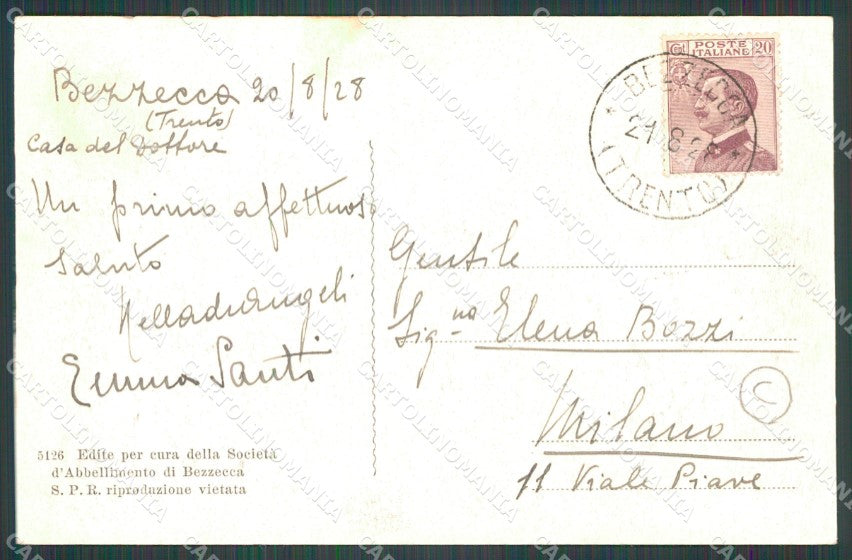 Bezzecca 20/8/28
(Trento)
Casa del Dottore
Un primo affettuoso
saluto
Emma Santi
5126 Edite per cura della Società
d'Abbellimento di Bezzecca
S. P. R. riproduzione vietata
POSTE
ITALIANE 20
BEZZECCA
21.8.28
(TRENTO)
Gentile
Sig.na Elena Bozzi
Milano
11 Viale Piave
C
CARTOLINOMANIA